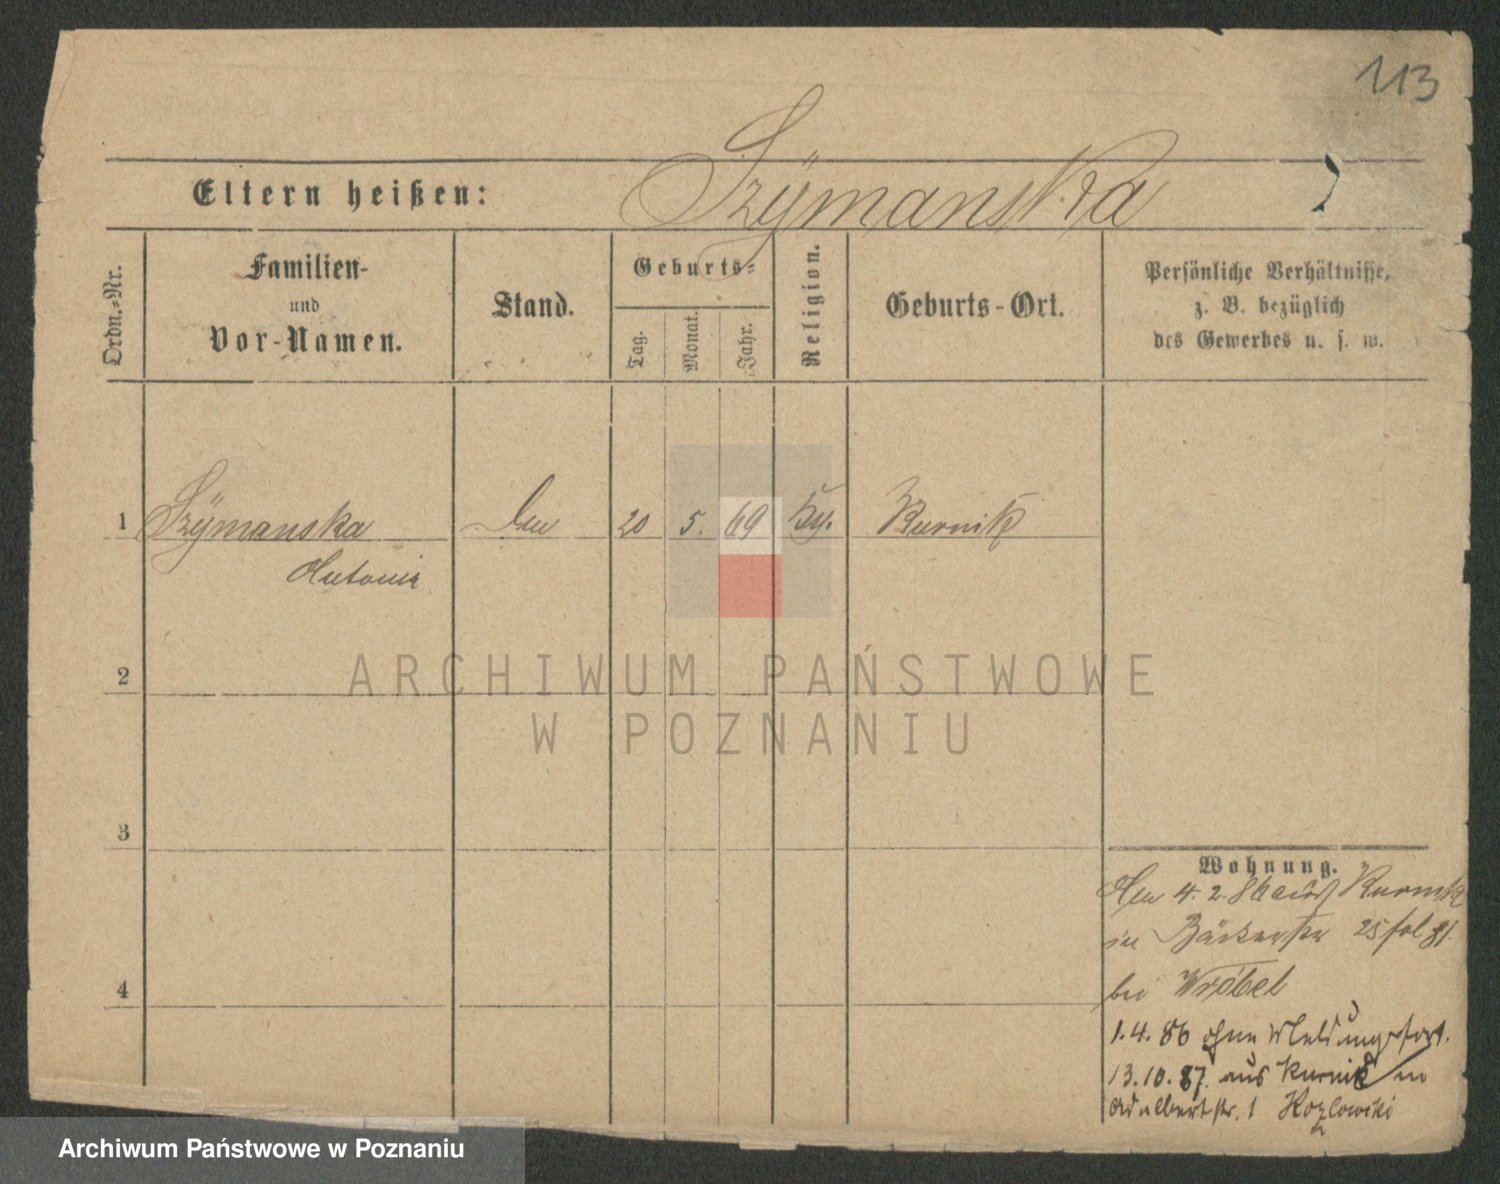 113
Eltern heißen: Szÿmanska
Ordn.-Nr.
Familien-
und
Vor-Namen.
Stand.
Geburts-
Tag.
Monat.
Jahr.
Religion.
Geburts-Ort.
Persönliche Verhältnisse,
z. B. bezüglich
des Gewerbes u. s. w.
1 Szÿmanska 20 5. 69 Kurnik
Antonie
2
3
4
Wohnung.
4. 2. 86 aus Kurnik
in Bäckerstr 25
bei Wróbel
1.4.86 ohne Meldung fort.
13.10.87. aus Kurnik in
Adalbertstr. 1 Kozlowski
ARCHIWUM PAŃSTWOWE
W POZNANIU
Archiwum Państwowe w Poznaniu